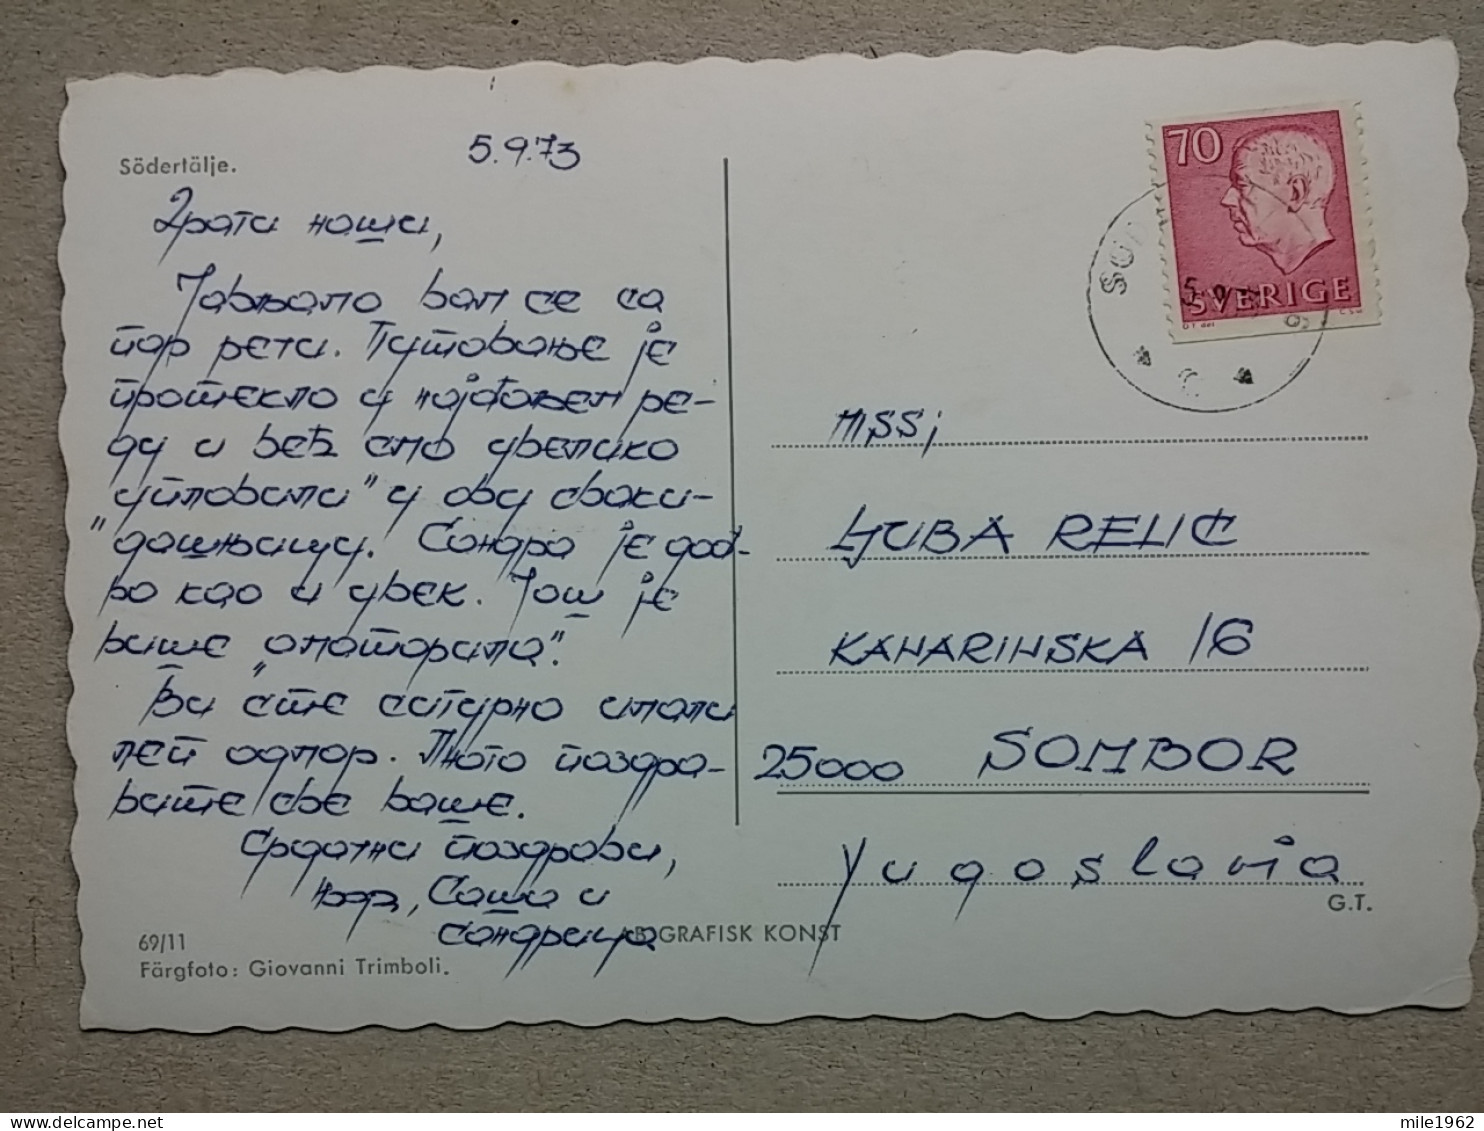 Södertälje.
5.9.73
Драги наши,
Јављамо вам се са
пар речи. Путовање је
протекло у најбољем ре-
ду и већ смо увелико
"упловили" у ову сваки-
"дашњицу. Сандра је доб-
ро као и увек. Још је
више "оматорила".
Ви сте сигурно имали
леп одмор. Много поздра-
вите све ваше.
Срдачни поздрави,
Саша и
Сандрица
69/11
Färgfoto: Giovanni Trimboli.
GRAFISK KONST
70
SVERIGE
MISS;
LJUBA RELIĆ
KANARINSKA 16
25000 SOMBOR
Yugoslavia
G.T.
mile1962